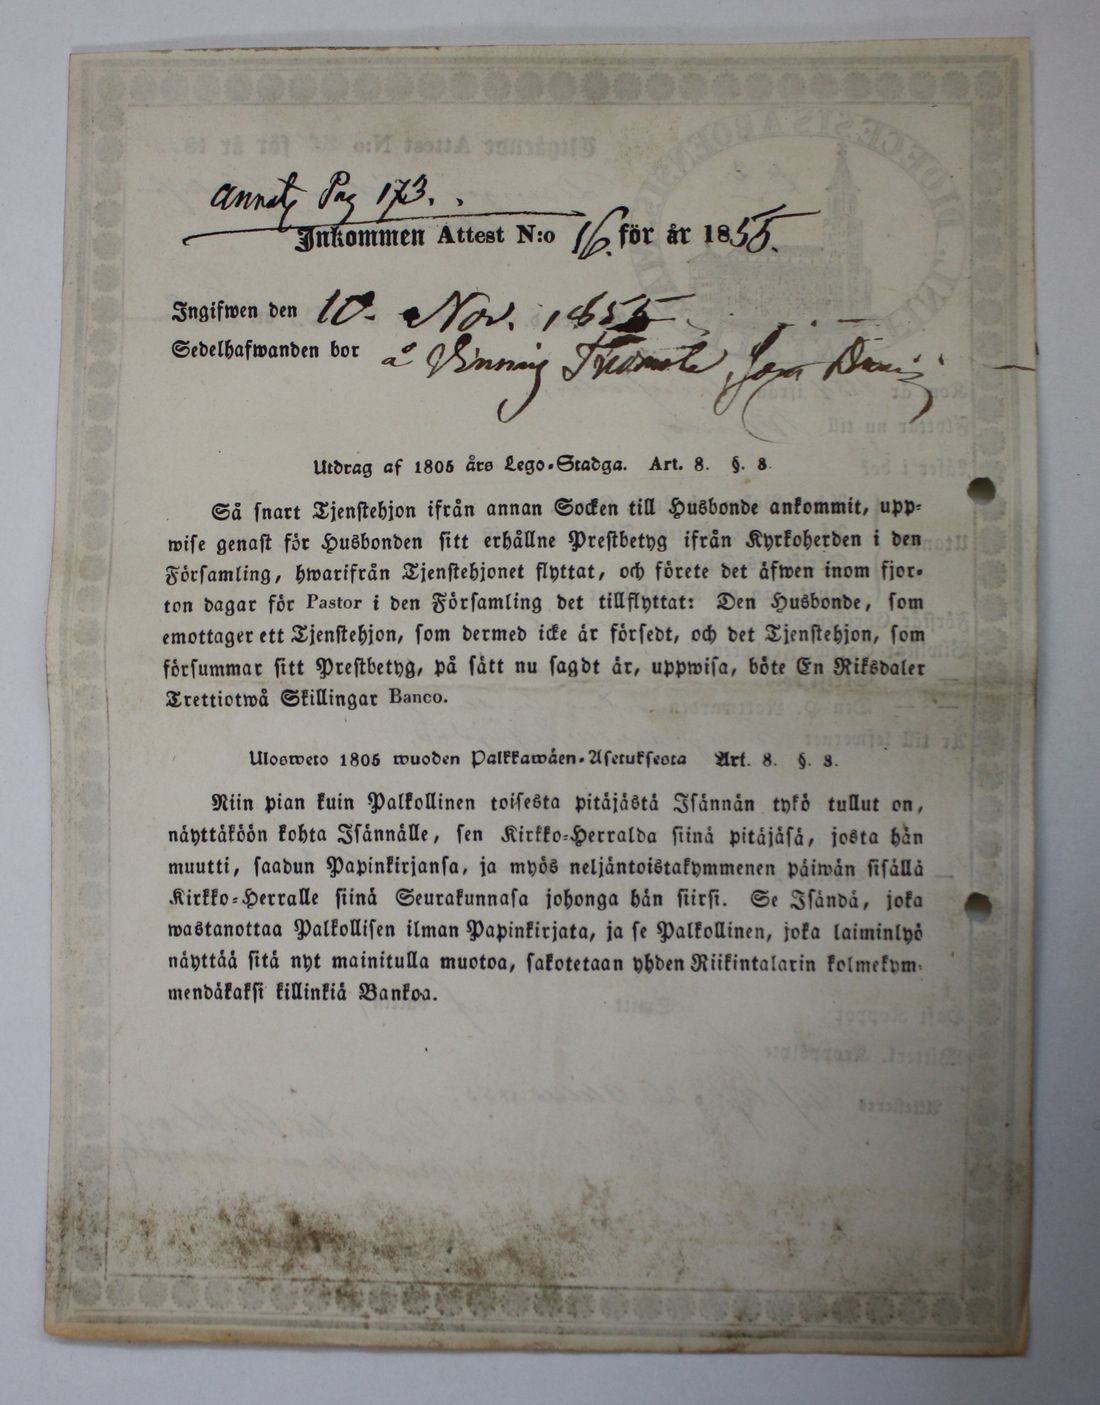 Pag 173.
Inkommen Attest N:o 16. för år 1855.
Ingifwen den 10. Nov. 1855
Sedelhafwanden bor å
Utdrag af 1805 års Lego-Stadga. Art. 8. §. 8.
Så snart Tjenstehjon ifrån annan Socken till Husbonde ankommit, upp-
wise genast för Husbonden sitt erhållne Prestbetyg ifrån Kyrkoherden i den
Församling, hwarifrån Tjenstehjonet flyttat, och förete det äfwen inom fjor-
ton dagar för Pastor i den Församling det tillflyttat: Den Husbonde, som
emottager ett Tjenstehjon, som dermed icke är försedt, och det Tjenstehjon, som
försummar sitt Prestbetyg, på sätt nu sagdt är, uppwisa, böte En Riksdaler
Trettiotwå Skillingar Banco.
Ulosweto 1805 wuoden Palkkawäen-Asetuksesta Art. 8. §. 8.
Niin pian kuin Palkollinen toisesta pitäjästä Isännän tykö tullut on,
näyttäköön kohta Isännälle, sen Kirkko-Herralda siinä pitäjäsä, josta hän
muutti, saadun Papinkirjansa, ja myös neljäntoistakymmenen päiwän sisällä
Kirkko-Herralle siinä Seurakunnasa johonga hän siirsi. Se Isändä, joka
wastanottaa Palkollisen ilman Papinkirjata, ja se Palkollinen, joka laiminlyö
näyttää sitä nyt mainitulla muotoa, sakotetaan yhden Riikintalarin kolmekym-
mendäkaksi killinkiä Bankoa.